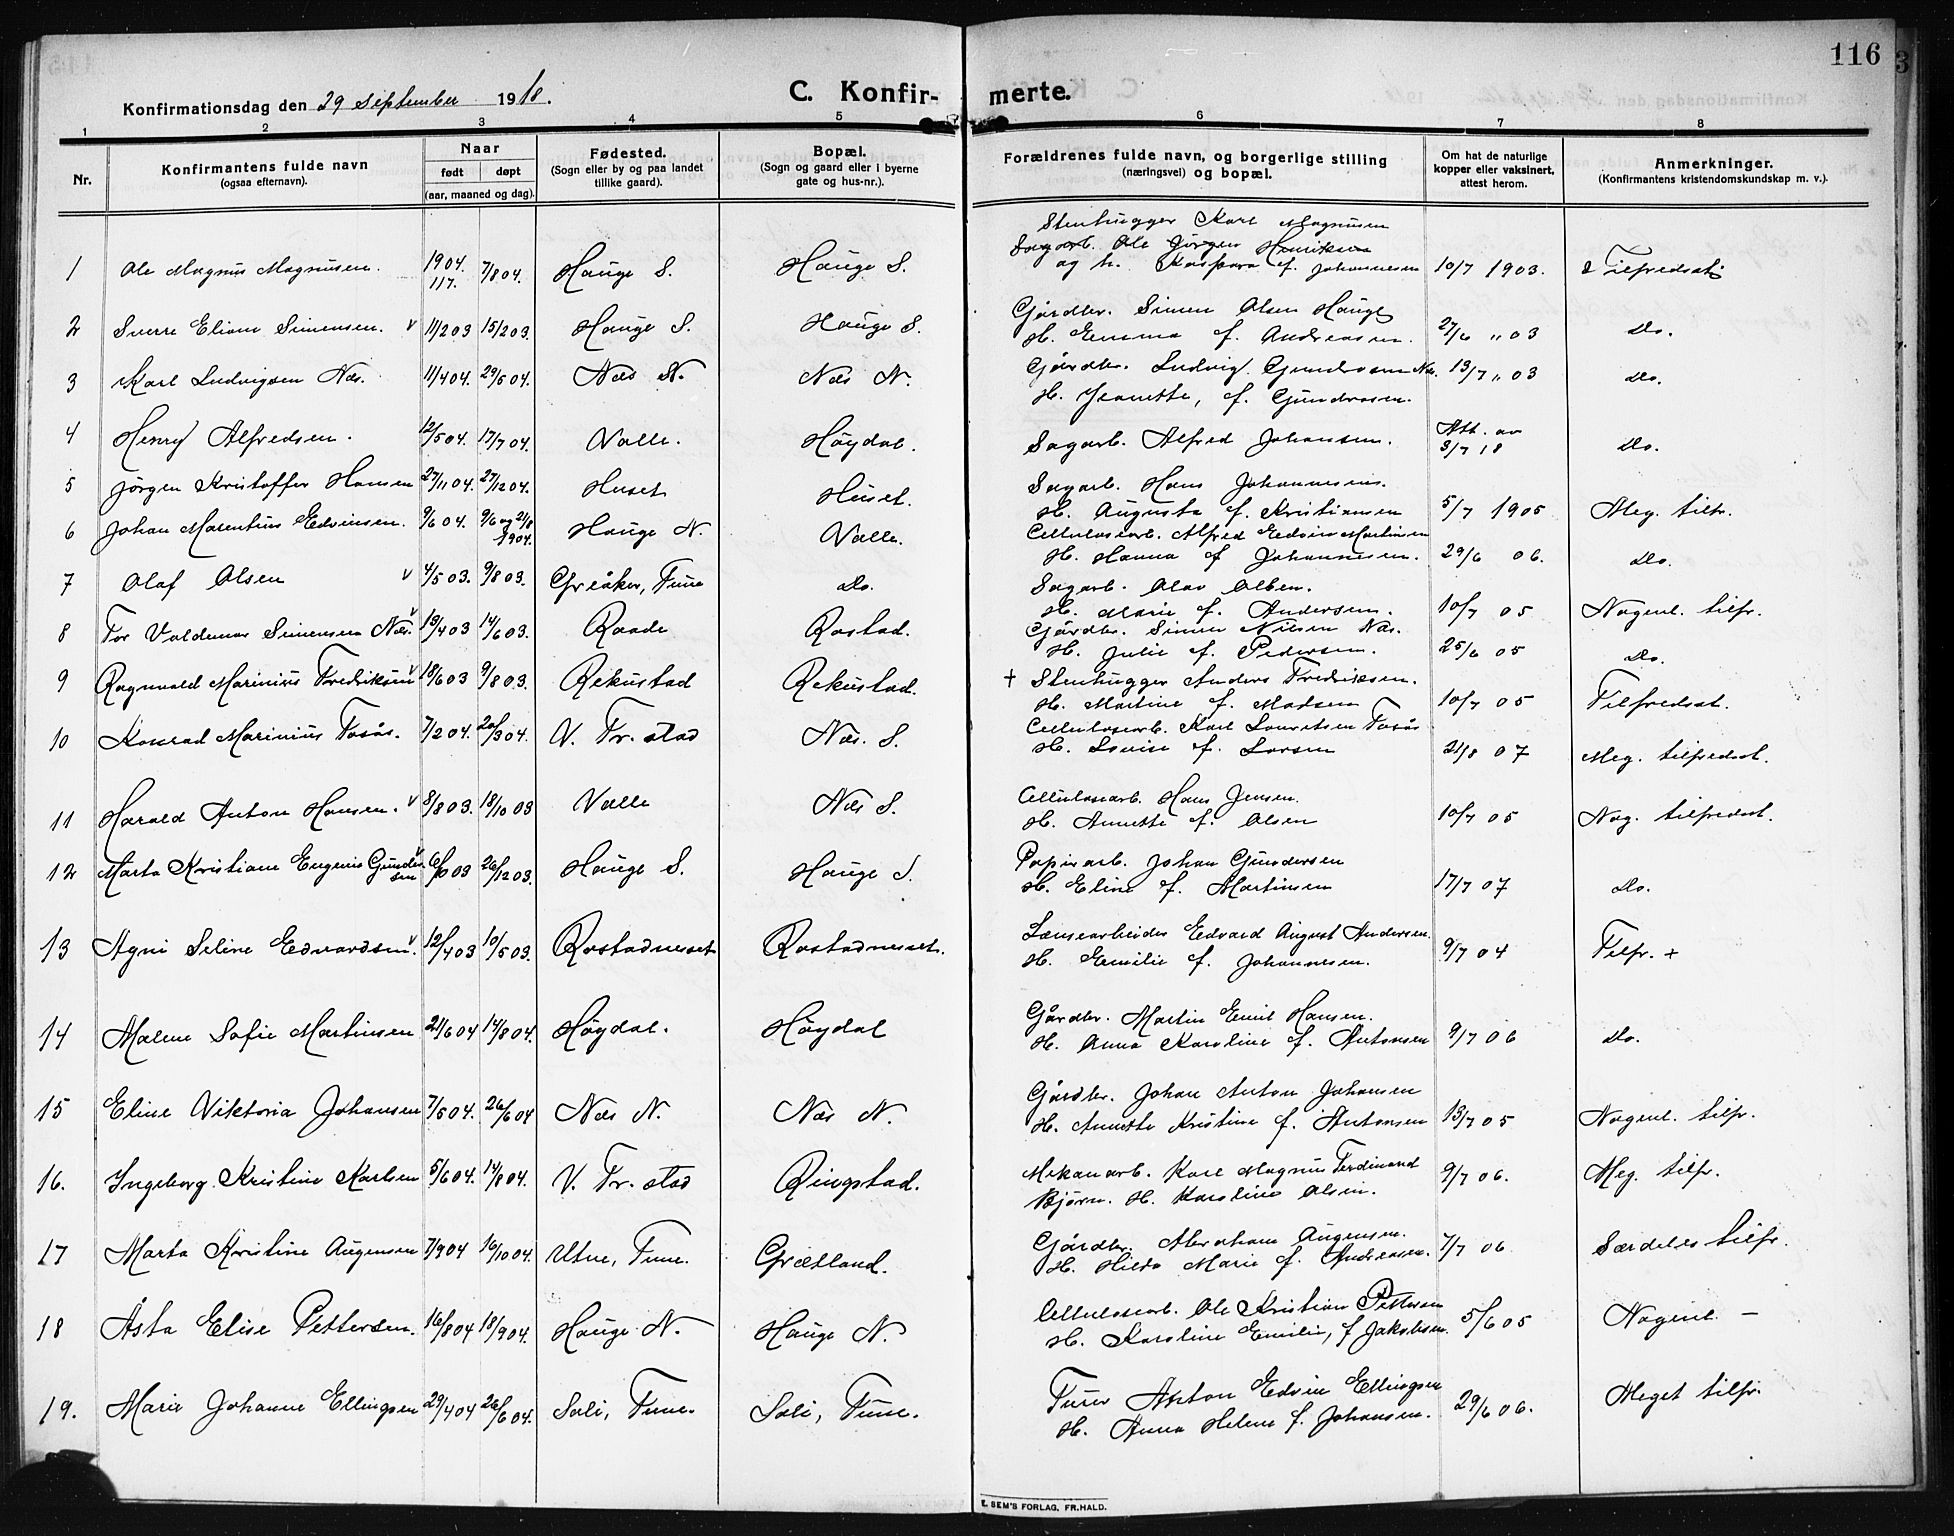 116
Konfirmationsdag den 29 September 1918.
C. Konfir- merte.
1 2 3 4 5 6 7 8
Nr.
Konfirmantens fulde navn
(ogsaa efternavn).
Naar
født døpt
(aar, maaned og dag).
Fødested.
(Sogn eller by og paa landet
tillike gaard).
Bopæl.
(Sogn og gaard eller i byerne
gate og hus-nr.).
Forældrenes fulde navn, og borgerlige stilling
(næringsvei) og bopæl.
Om hat de naturlige
kopper eller vaksinert,
attest herom.
Anmerkninger.
(Konfirmantens kristendomskundskap m. v.).
Stenhugger Karl Magnusen
1 Ole Magnus Magnusen. 1904. 11/7. 7/8 04. Hauge S. Hauge S. Sagarb. Ole Jørgen Henriksen
og h. Kaspara f. Johannesen 10/7 1903. Tilfredsst.
2 Sverre Eliam Simensen. v 11/2 03 15/2 03. Hauge S. Hauge S. Gårdbr. Simen Olsen Hauge
H. Emma f. Andreasen. 27/6 " 03 Do.
3 Karl Ludvigsen Næs. 11/4 04. 29/5 04. Næs N. Næs N. Gårdbr. Ludvig Gundersen Næs. 13/7 " 03 Do.
H. Jeanette, f. Gundersen.
4 Henry Alfredsen. 12/5 04. 17/7 04. Valle. Høydal. Sagarb. Alfred Johansen. Att. av
3/7 18 Do.
5 Jørgen Kristoffer Hansen 27/11 04. 27/12 04. Huset Huset. Sagarb. Hans Johannesen.
H. Augusta f. Kristiansen 5/7 1905 Meg. tilfr.
6 Johan Marentius Edvinsen. 9/6 04. 9/6 og 21/8 1904. Hauge N. Valle. Cellulosearb. Alfred Edvin Martinsen
H. Hanna f. Johannesen. 29/6 06. Do.
7 Olaf Olsen v 4/5 03. 9/8 03. Greåker, Tune Do. Sagarb. Olav Olsen.
H. Marie f. Andersen. 10/7 05 Nogenl. tilfr.
8 Tor Valdemar Simensen Næs. v 13/4 03 14/6 03. Raade Rostad. Gårdbr. Simen Nilsen Næs.
H. Julie f. Pedersen. 25/6 05 Do.
9 Ragnvald Marinius Fredriksen v 18/6 03 9/8 03. Rekustad Rekustad. + Stenhugger Anders Fredriksen.
H. Martine f. Madsen 10/7 05 Tilfredsst.
10 Konrad Marinius Tosås. 7/2 04. 20/3 04. V. Fr.stad Næs. S. Cellulosearb. Karl Lauritsen Tosås
H. Lovise f. Larsen 21/8 07 Meg. tilfredsst.
11 Harald Anton Hansen. v 8/8 03. 18/10 03 Valle Næs S. Cellulosearb. Hans Jensen.
H. Annette f. Olsen 10/7 05 Nog. tilfredsst.
12 Marta Kristiane Eugenie Gundersen v 6/10 03 26/12 03. Hauge S. Hauge S. Papirarb. Johan Gundersen
H. Eline f. Martinsen 17/7 07 Do.
13 Agni Seline Edvardsen. v 12/4 03 10/5 03. Rostadnesset Rostadnesset. Lænsearbeider Edvard August Andersen.
H. Emilie f. Johannesen. 9/7 04 Tilfr. +
14 Malene Sofie Martinsen 21/6 04 14/8 04. Høydal. Høydal Gårdbr. Martin Emil Hansen.
H. Anna Karoline f. Antonsen 9/7 06 Do.
15 Eline Viktoria Johansen 7/5 04. 26/6 04 Næs N. Næs N. Gårdbr. Johan Anton Johansen
H. Annette Kristine f. Antonsen 13/7 05 Nogenl. tilfr.
16. Ingeborg Kristine Karlsen 5/6 04. 14/8 04. V. Fr.stad Ringstad. Mekan.arb. Karl Magnus Ferdinand
Bjørn. H. Karoline Olsen. 9/7 06. Meg. tilfr.
17 Marta Kristine Augensen 7/9 04 16/10 04. Utne, Tune. Grætland. Gårdbr. Abraham Augensen.
H. Hilda Marie f. Andreasen. 7/7 06. Særdeles tilfr.
18 Åsta Elise Pettersen. 16/8 04 18/9 04. Hauge N. Hauge N. Cellulosearb. Ole Kristian Pettersen
H. Karoline Emilie, f. Jakobsen. 5/6 05 Nogenl. —
19. Marie Johanne Ellingsen 29/4 04 26/6 04. Soli, Tune. Soli, Tune. Anton Edvin Ellingsen
H. Anna Helene f. Johansen. 29/6 06. Meget tilfr.
E. SEM'S FORLAG, FR.HALD.